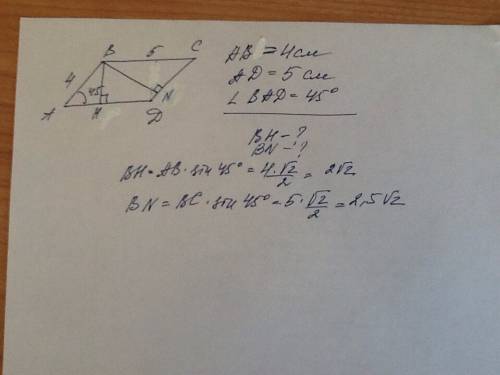 B 5 C
4
45
A H D N
AB = 4 см
AD = 5 см
∠ BAD = 45°
BH - ?
BN - ?
BH = AB · sin 45° = 4·√2/2 = 2√2
BN = BC · sin 45° = 5·√2/2 = 2,5√2